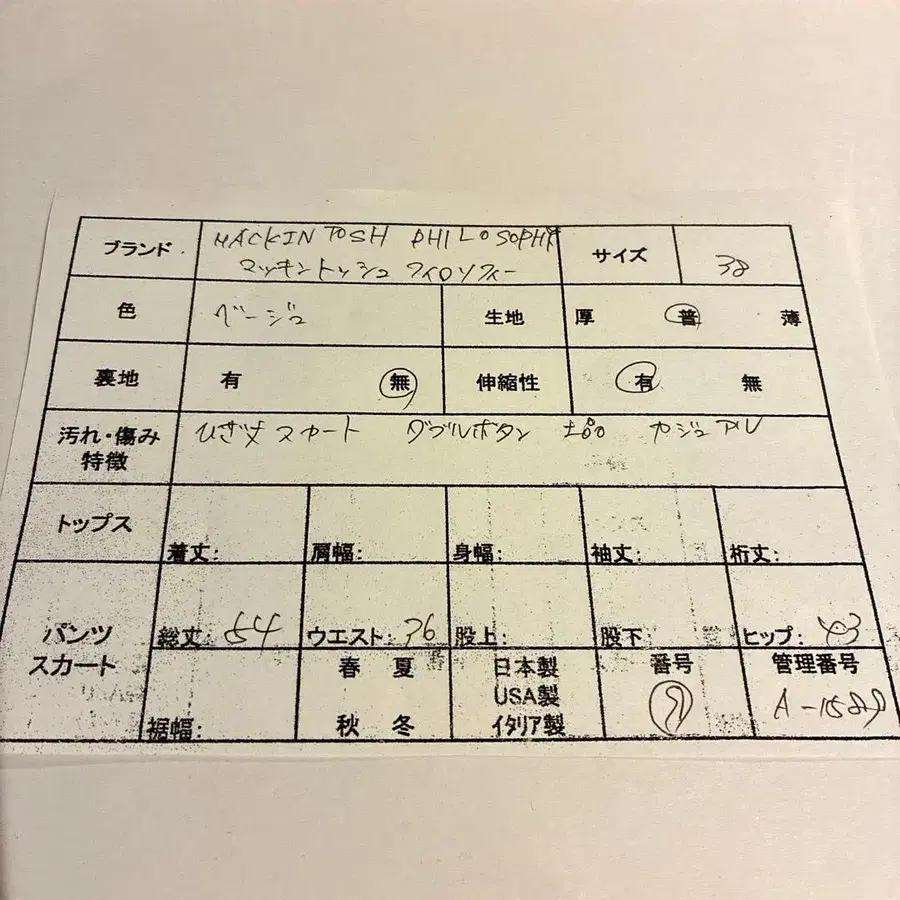 ブランド MACKINTOSH PHILOSOPHY サイズ 38
マッキントッシュ フィロソフィー
色 ベージュ 生地 厚 普 薄
裏地 有 無 伸縮性 有 無
汚れ・傷み ひざ丈 スカート ダブルボタン カジュアル
特徴
トップス 着丈: 肩幅: 身幅: 袖丈: 裄丈:
パンツ
スカート
総丈: 54 ウエスト: 36 股上: 股下: ヒップ: 43
裾幅:
春 夏
秋 冬
日本製
USA製
イタリア製
番号
9
管理番号